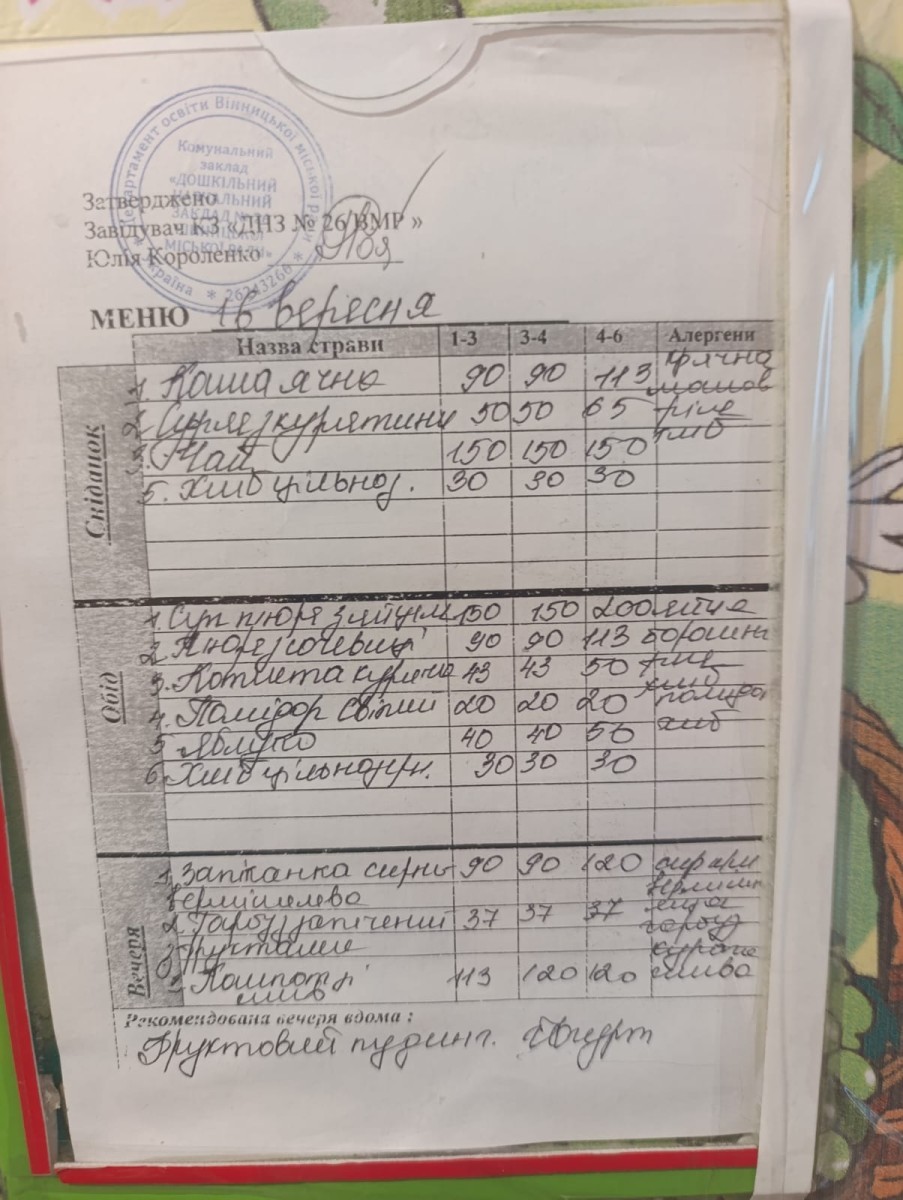 Департамент освіти Вінницької міської ради
Комунальний
заклад
«ДОШКІЛЬНИЙ
НАВЧАЛЬНИЙ
ЗАКЛАД
ВІННИЦЬКОЇ
МІСЬКОЇ РАДИ»
* Україна * 26243266 *
Затверджено
Завідувач КЗ «ДНЗ № 26 ВМР »
Юлія Короленко
МЕНЮ 16 вересня
Назва страви 1-3 3-4 4-6 Алергени
Сніданок
1. Каша ячна 90 90 113 ячна
2. з курятини 50 50 65
Чай 150 150 150 хліб
5. Хліб цільноз. 30 30 30
Обід
1. Суп пюре з яйцем 150 150 200 яйце
2. Пюре 90 90 113 борошно
3. Котлета куряча 43 43 50 хліб
4. Помідор свіжий 20 20 20 помідор
5 Яблуко 40 40 50 хліб
6. Хліб цільнозерн. 30 30 30
Вечеря
1. Запіканка сирно 90 90 120 сир
вермішелева
2. Гарбуз запечений 37 37 37 гарбуз
Компот зі 113 120 120 слива
слив
Рекомендована вечеря вдома :
Фруктовий пудинг. Йогурт